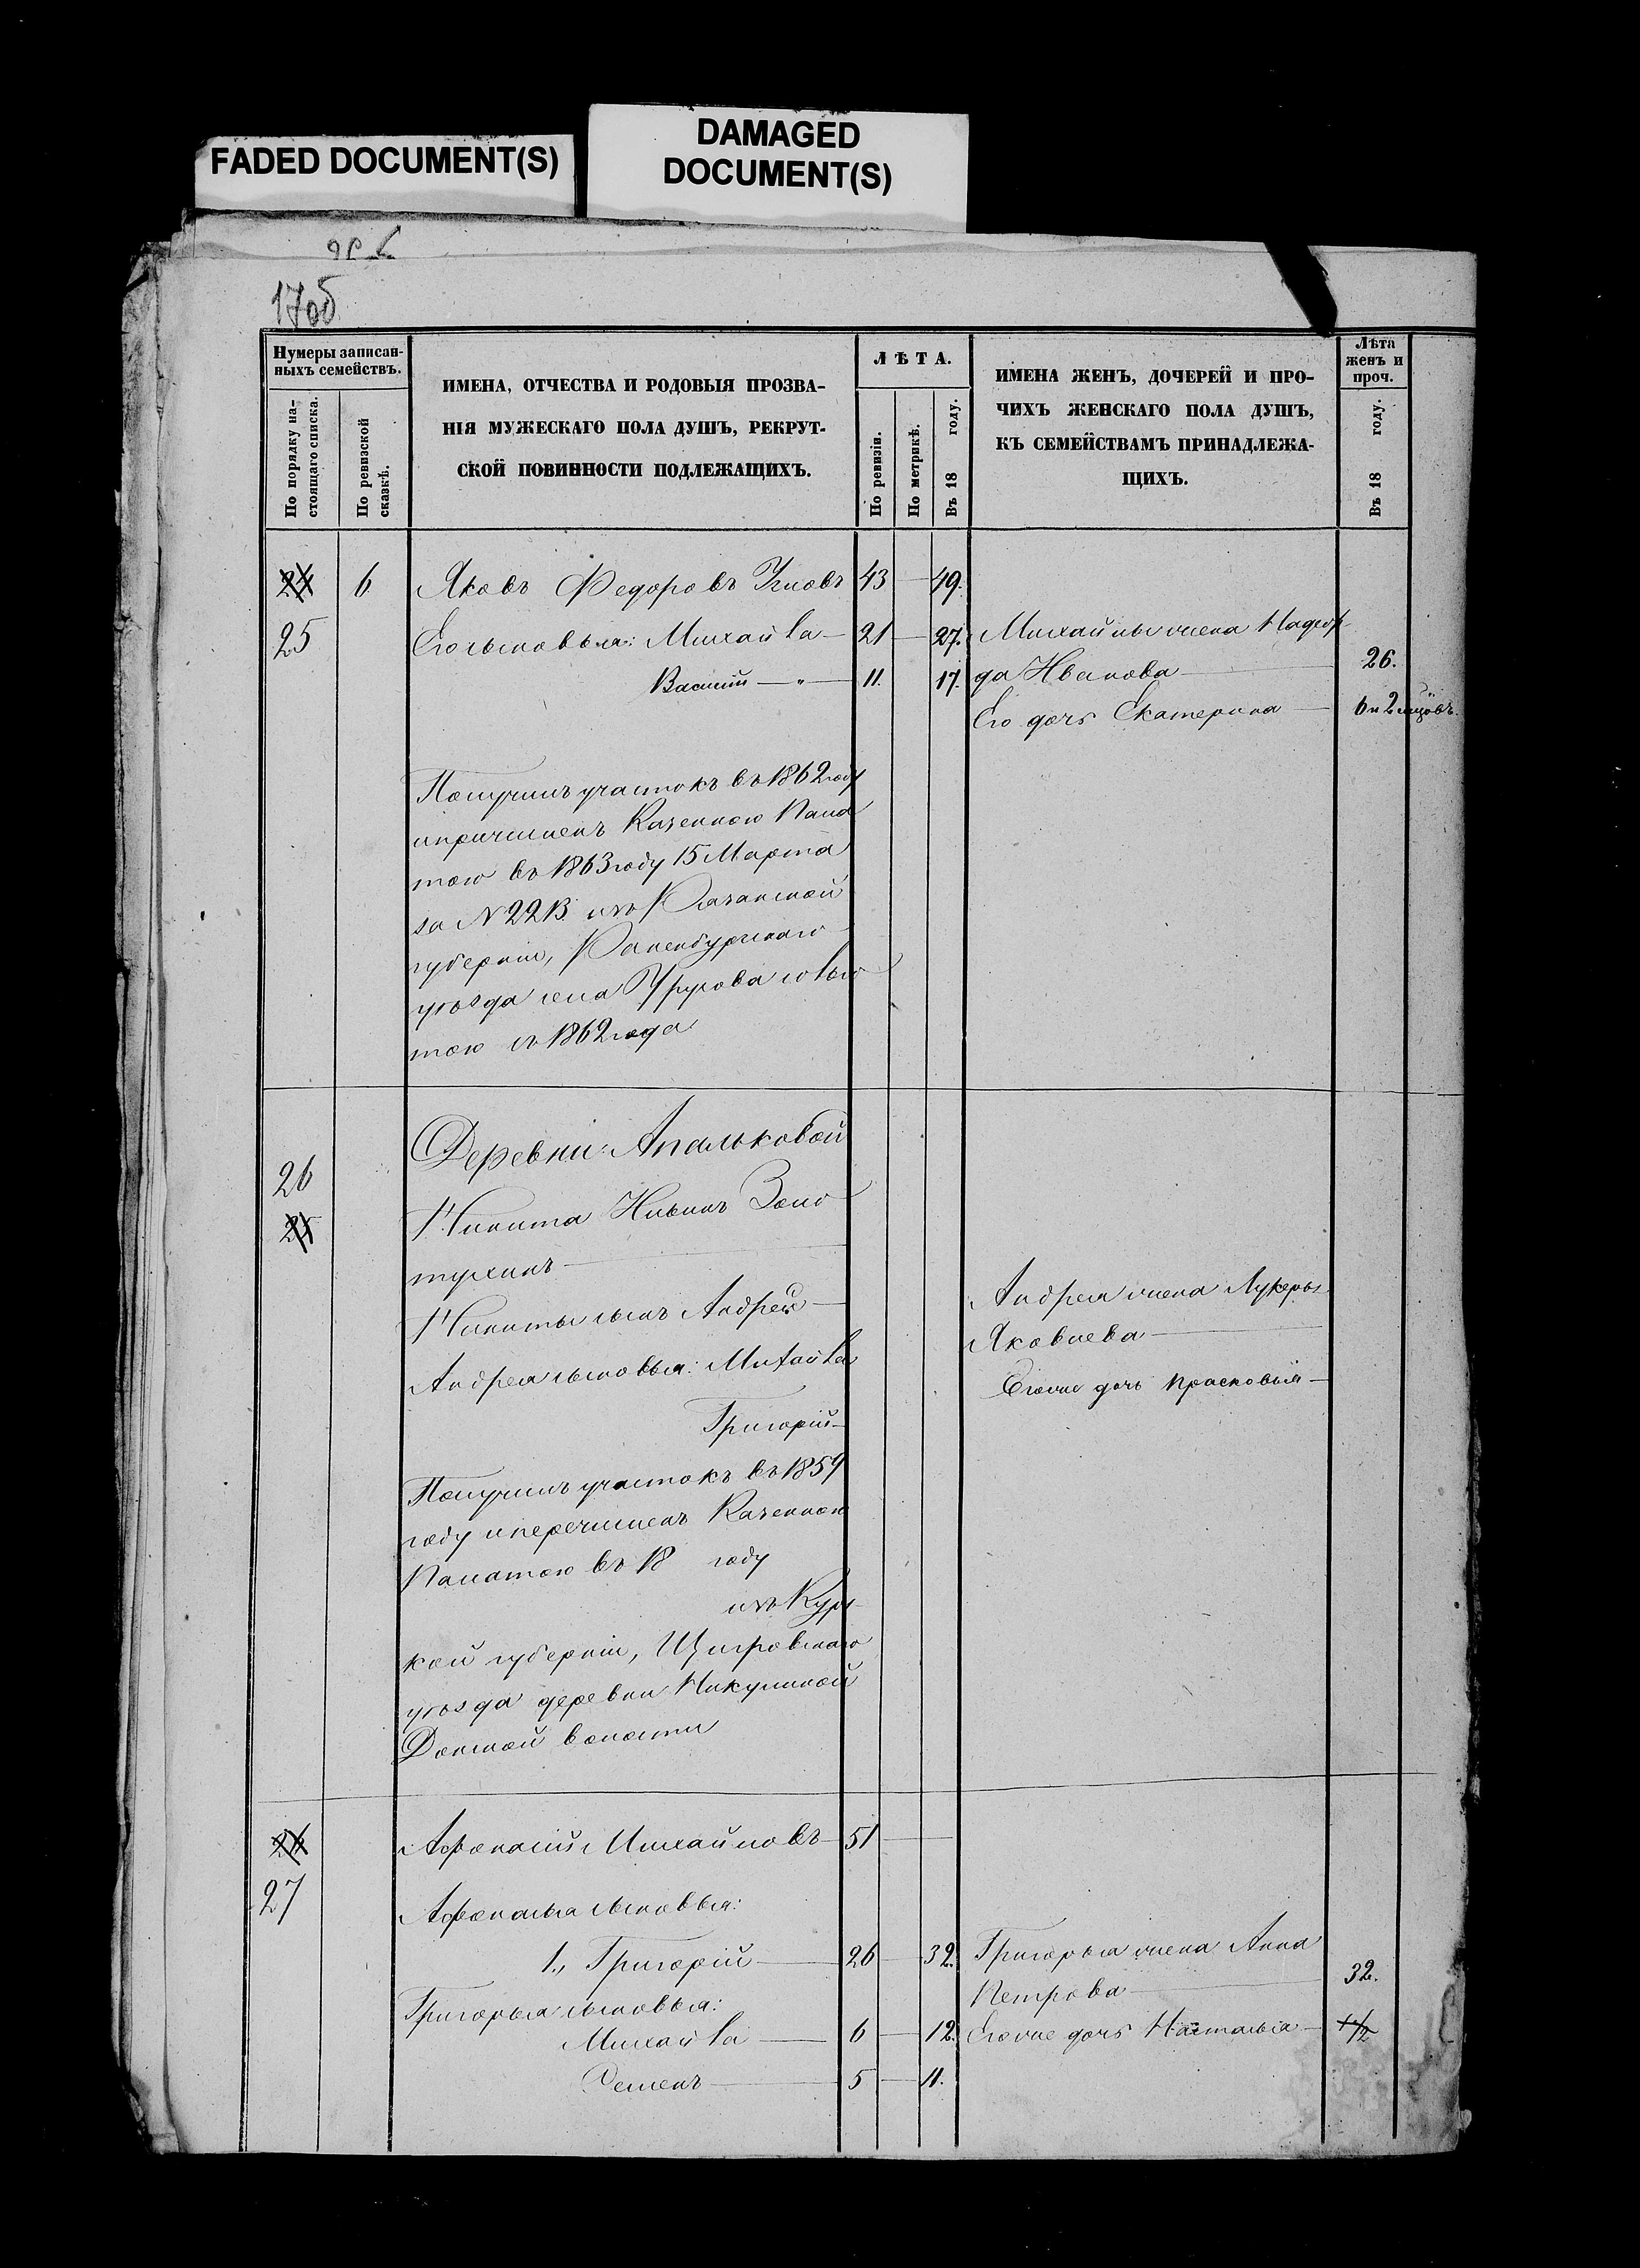 FADED DOCUMENT(S)
DAMAGED
DOCUMENT(S)
17об
Нумеры записан-
ныхъ семействъ.
По порядку на-
стоящаго списка.
По ревизской
сказкѣ.
ИМЕНА, ОТЧЕСТВА И РОДОВЫЯ ПРОЗВА-
НІЯ МУЖЕСКАГО ПОЛА ДУШЪ, РЕКРУТ-
СКОЙ ПОВИННОСТИ ПОДЛЕЖАЩИХЪ.
ЛѢТА.
По ревизіи.
По метрикѣ.
Въ 18 году.
ИМЕНА ЖЕНЪ, ДОЧЕРЕЙ И ПРО-
ЧИХЪ ЖЕНСКАГО ПОЛА ДУШЪ,
КЪ СЕМЕЙСТВАМЪ ПРИНАДЛЕЖА-
ЩИХЪ.
Лѣта
женъ и
проч.
Въ 18 году.
24 6 Яковъ Федоровъ 43 — 49.
25 Его сыновья: Михайла — 21 — 27. Михайлы жена Надеж-
Василій — " — 11. 17. да Иванова — 26.
Его дочь Екатерина — 6 и 2 мцовъ.
Получилъ участокъ въ 1862 году
и причисленъ Казенною Пала
тою въ 1863 году 15 Марта
за № 2213 изъ Рязанской
губерніи, Раненбургскаго
уѣзда села Урусова льго
тою съ 1862 года
Деревни: Апальковой
26
25 Никита Ильинъ Золо
тухинъ —
Никиты сынъ Андрей — Андрея жена Лукерья
Яковлева —
Андрея сыновья: Михайла
Его же дочь Прасковья —
Григорій —
Получилъ участокъ въ 1859
году и перечисленъ Казенною
Палатою въ 18 году
изъ Курс
кой губерніи, Щигровскаго
уѣзда деревни Никулиной
волости
26 Афонасій Михайловъ — 51 —
27
Афонасья сыновья:
1., Григорій — 26 — 32. Григорья жена Анна
Петрова — 32.
Григорья сыновья:
Михайла — 6 — 12. Его же дочь Наталья —
Семенъ — 5 — 11.